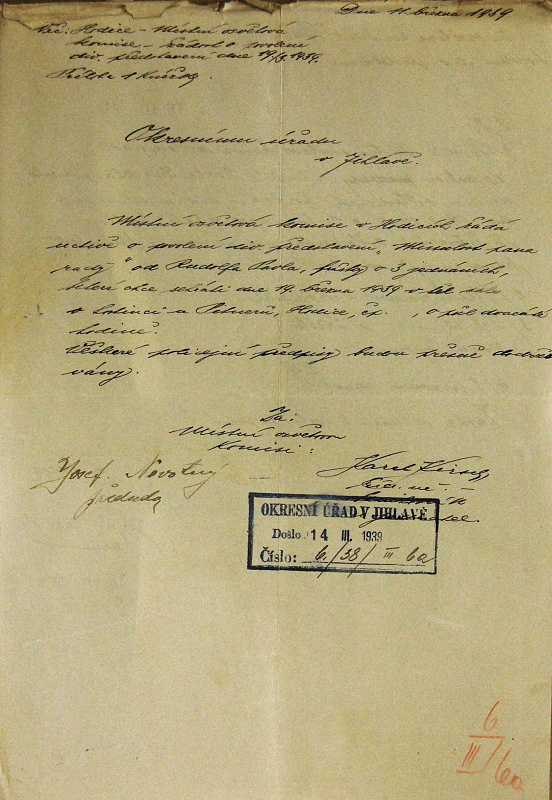 Dne 11. března 1939
Věc: Hodice - Místní osvětová
komise - žádost o povolení
div. představení dne 19/3. 1939.
Okresnímu úřadu
v Jihlavě.
Místní osvětová komise v Hodicích žádá
uctivě o povolení div. představení „Minulost pana
rady" od Rudolfa Pavla, frašky o 3 jednáních,
které chce sehráti dne 19. března 1939 v
v hostinci u , Hodice, čp. , o půl dvacáté
hodině.
Veškeré policejní předpisy budou přesně dodržo
vány.
Za:
Místní osvětovou
komisi:
Josef Novotný
předseda
Karel
OKRESNÍ ÚŘAD V JIHLAVĚ
Došlo: 14 III. 1939
Číslo: 6/38/III 6a
6
III/6a